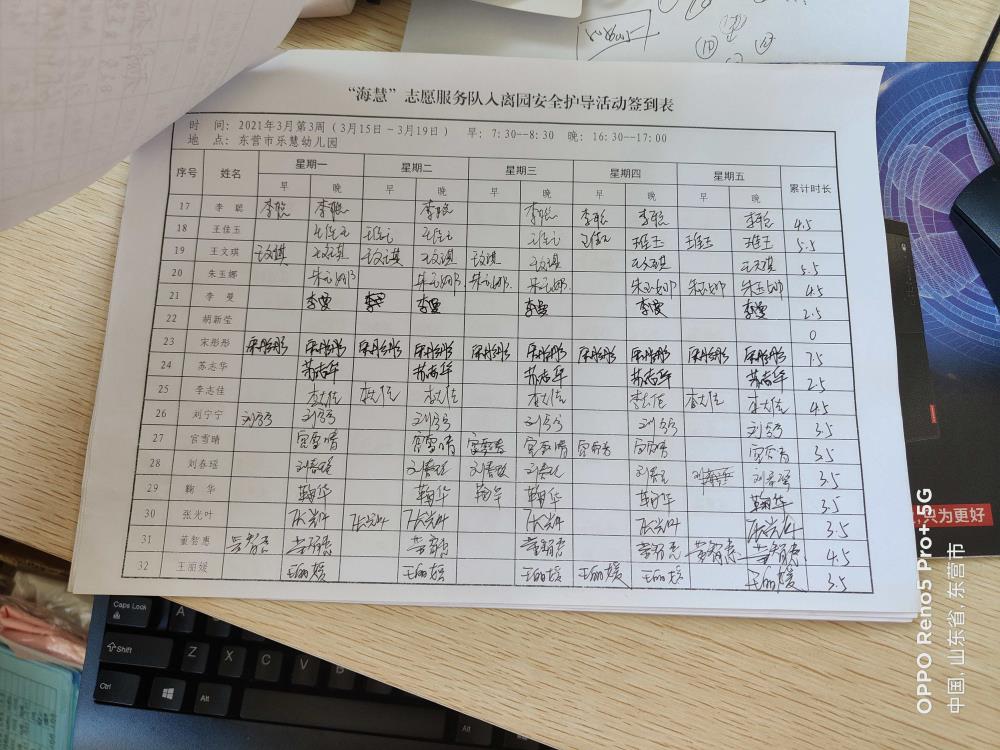 “海慧”志愿服务队入离园安全护导活动签到表
时 间: 2021年3月第3周（3月15日~3月19日） 早: 7:30--8:30 晚: 16:30--17:00
地 点: 东营市乐慧幼儿园
序号 姓名 星期一 星期二 星期三 星期四 星期五 累计时长
早 晚 早 晚 早 晚 早 晚 早 晚
17 李聪 李聪 李聪 李聪 李聪 李聪 李聪 李聪 4.5
18 王佳玉 王佳玉 王佳玉 王佳玉 王佳玉 王佳玉 王佳玉 王佳玉 王佳玉 5.5
19 王文琪 王文琪 王文琪 王文琪 王文琪 王文琪 王文琪 王文琪 王文琪 5.5
20 朱玉娜 朱玉娜 朱玉娜 朱玉娜 朱玉娜 朱玉娜 朱玉娜 朱玉娜 4.5
21 李曼 李曼 李曼 李曼 李曼 李曼 李曼 2.5
22 胡新莹 0
23 宋彤彤 宋彤彤 宋彤彤 宋彤彤 宋彤彤 宋彤彤 宋彤彤 宋彤彤 宋彤彤 宋彤彤 宋彤彤 7.5
24 苏志华 苏志华 苏志华 苏志华 苏志华 苏志华 2.5
25 李志佳 李志佳 李志佳 李志佳 李志佳 李志佳 李志佳 李志佳 4.5
26 刘宁宁 刘宁宁 刘宁宁 刘宁宁 刘宁宁 刘宁宁 刘宁宁 3.5
27 宫雪晴 宫雪晴 宫雪晴 宫雪晴 宫雪晴 宫雪晴 宫雪晴 宫雪晴 3.5
28 刘春瑶 刘春瑶 刘春瑶 刘春瑶 刘春瑶 刘春瑶 刘春瑶 3.5
29 鞠华 鞠华 鞠华 鞠华 鞠华 鞠华 鞠华 3.5
30 张光叶 张光叶 张光叶 张光叶 张光叶 张光叶 张光叶 3.5
31 董智惠 董智惠 董智惠 董智惠 董智惠 董智惠 董智惠 董智惠 4.5
32 王丽媛 王丽媛 王丽媛 王丽媛 王丽媛 王丽媛 王丽媛 3.5
Caps Lock A
Shift Z X C V B
Ctrl Alt Alt
只为更好
OPPO Reno5 Pro+ 5G
中国, 山东省, 东营市